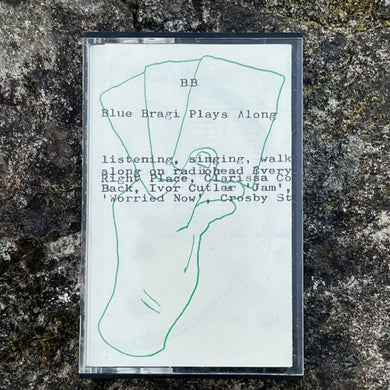 B.B.
Blue Bragi Plays Along
listening, singing, walk
along on radiohead Every
Right Place, Clarissa Co
Back, Ivor Cutler 'Jam',
'Worried Now', Crosby St